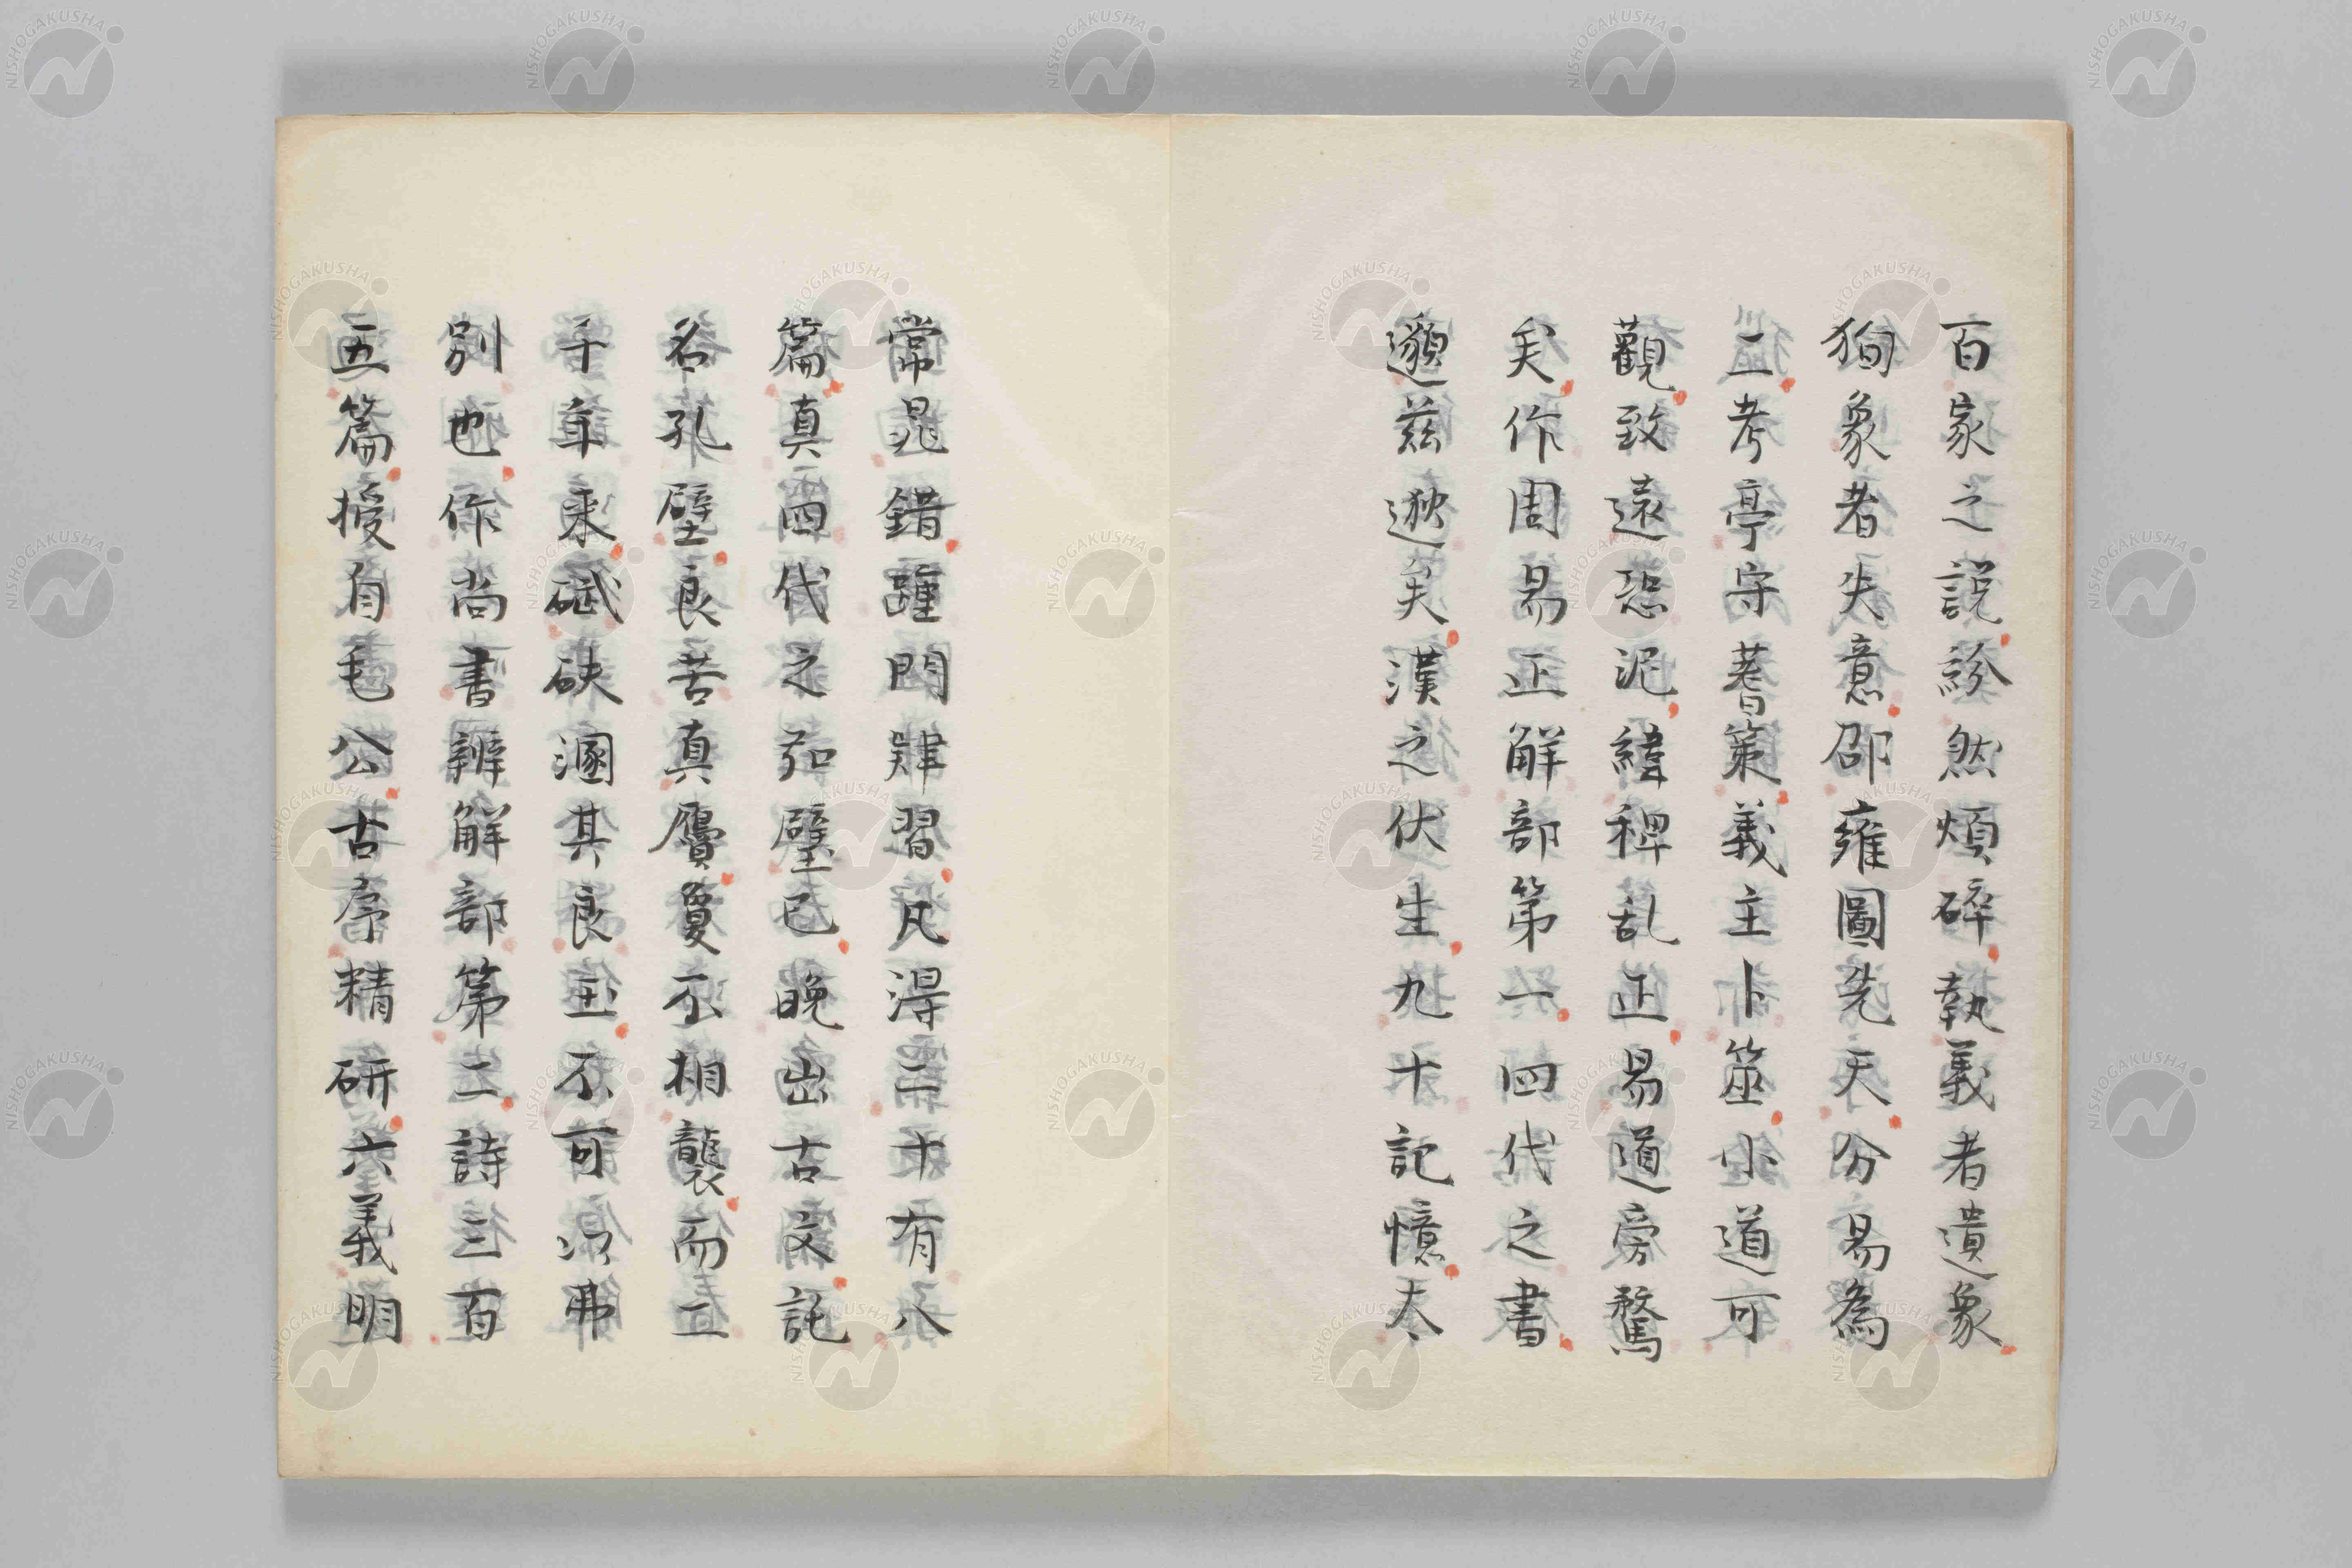 百家之説紛然煩碎執義者遺象
狥象者失意邵雍圖先天分易為
二考亭守蓍策義主卜筮小道可
觀致遠恐泥緯稗乱正易道旁騖
矣作周易正解部第一四代之書
邈茲逖矣漢之伏生九十記憶太
常晁錯踵門肄習凡得二十有八
篇真四代之弘璧已晚出古文託
名孔壁良苦真贗夐不相襲而二
千年来碔砆溷其良玉不可以弗
別也作尚書辨解部第二詩三百
五篇授自毛公古序精研六義明
NISHOGAKUSHA